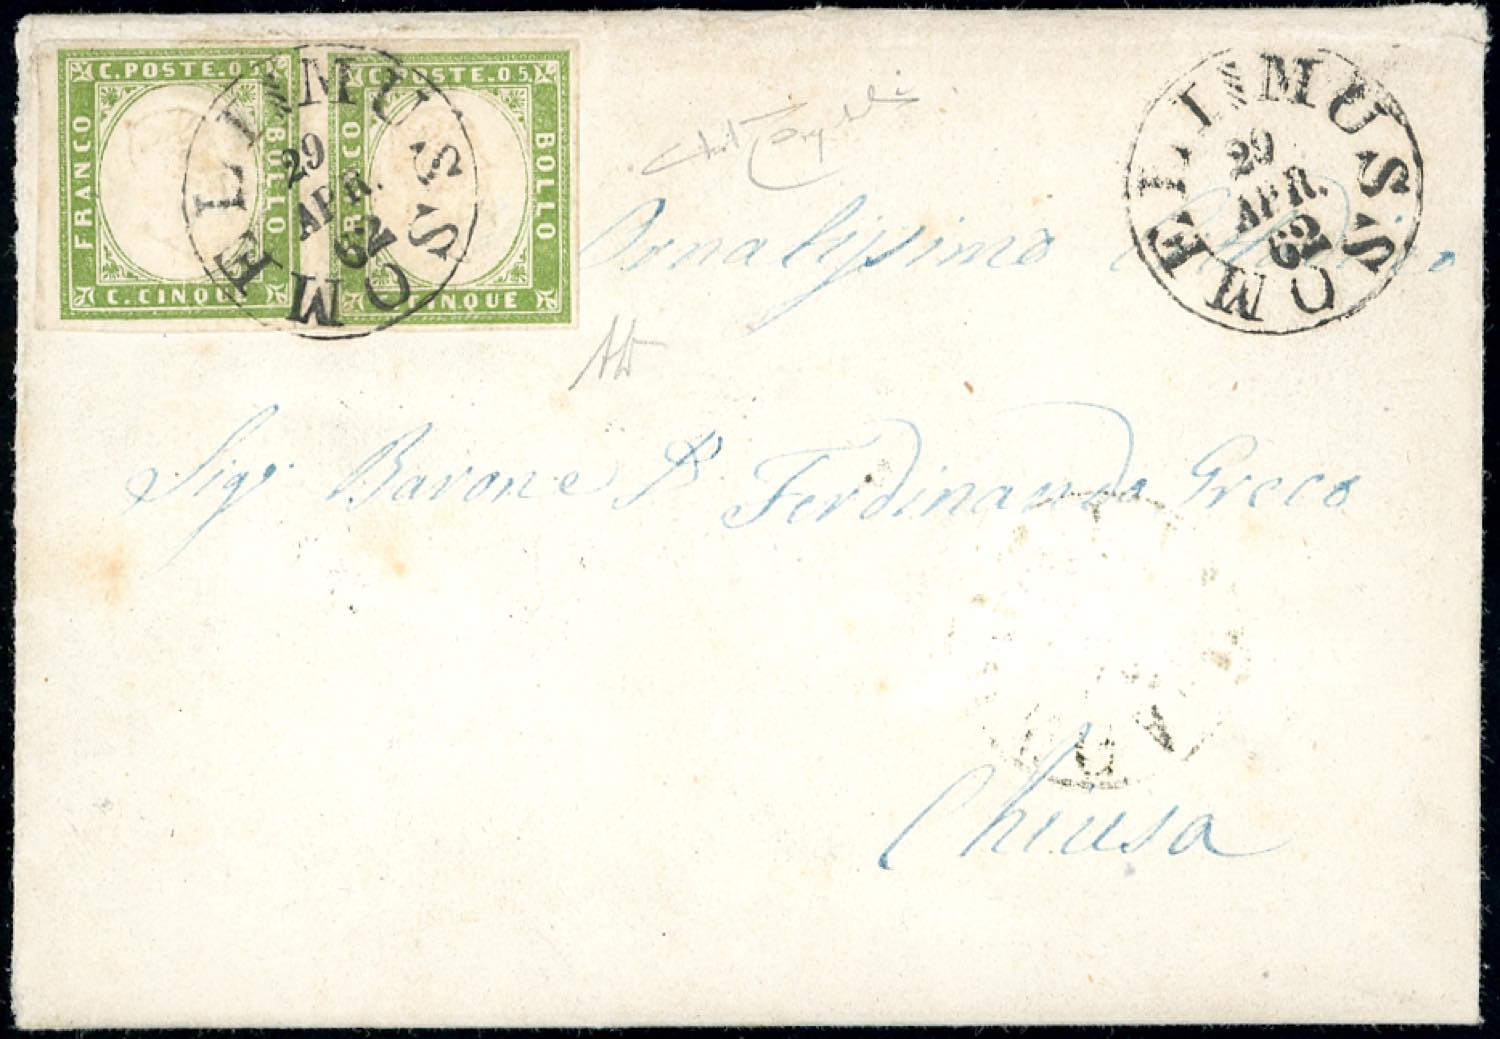 C. POSTE. 05.
FRANCO
BOLLO
C. CINQUE
C. POSTE. 05.
FRANCO
BOLLO
C. CINQUE
MUSSOMELI
29
APR.
62
MUSSOMELI
29
APR.
62
Ornatissimo
Sigr. Barone Dn Ferdinando Greco
Chiusa